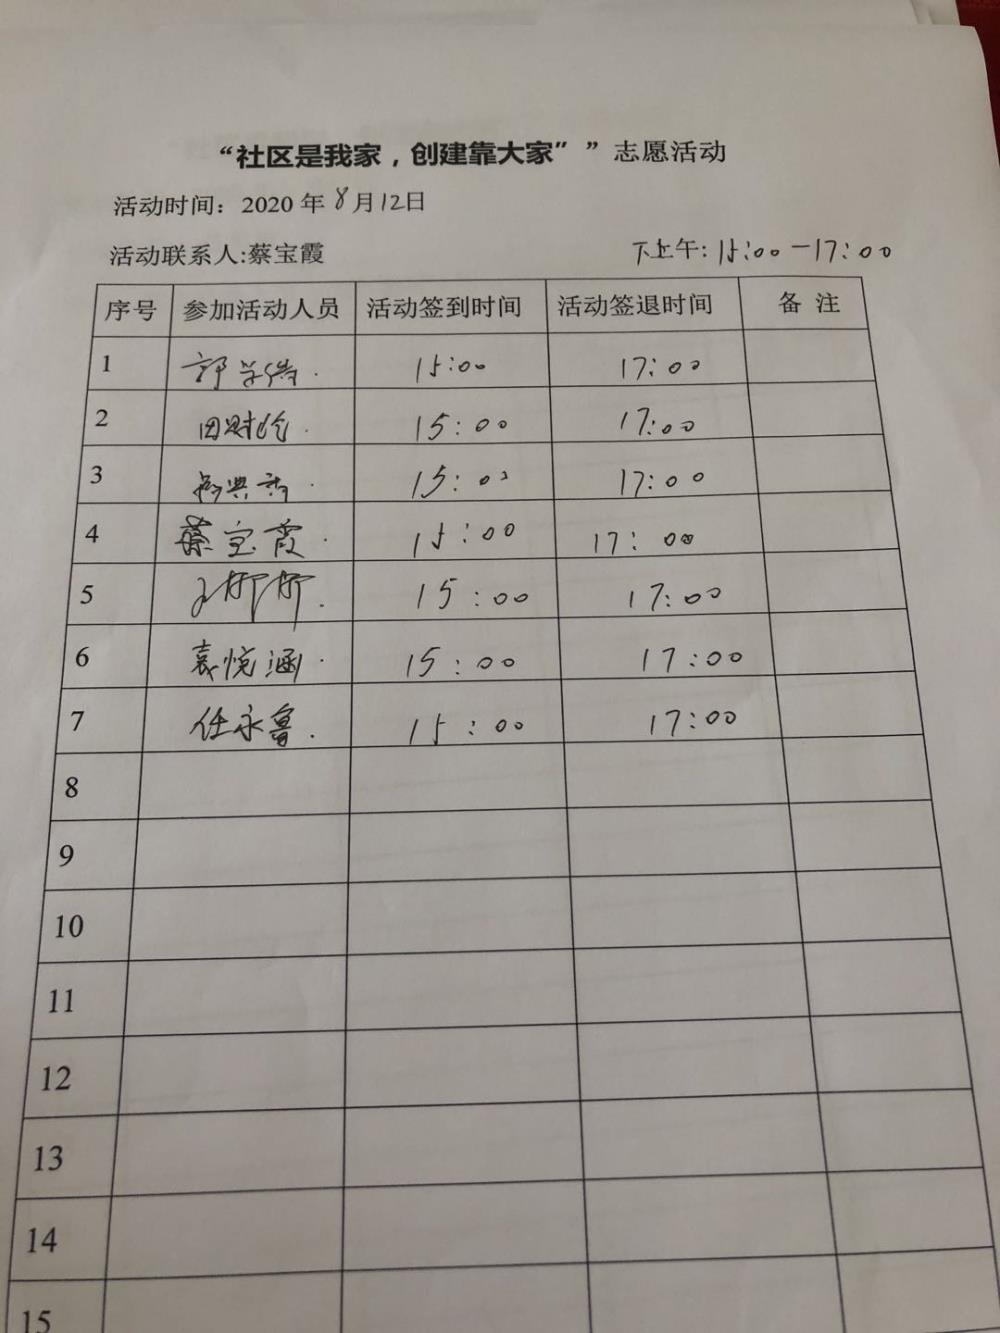 “社区是我家，创建靠大家””志愿活动
活动时间：2020 年 8 月 12日
活动联系人:蔡宝霞 下上午: 15:00 — 17:00
序号 参加活动人员 活动签到时间 活动签退时间 备 注
1 15:00 17:00
2 田财伦 15:00 17:00
3 15:00 17:00
4 蔡宝霞 15:00 17:00
5 15:00 17:00
6 袁悦涵 15:00 17:00
7 任永鲁 15:00 17:00
8
9
10
11
12
13
14
15